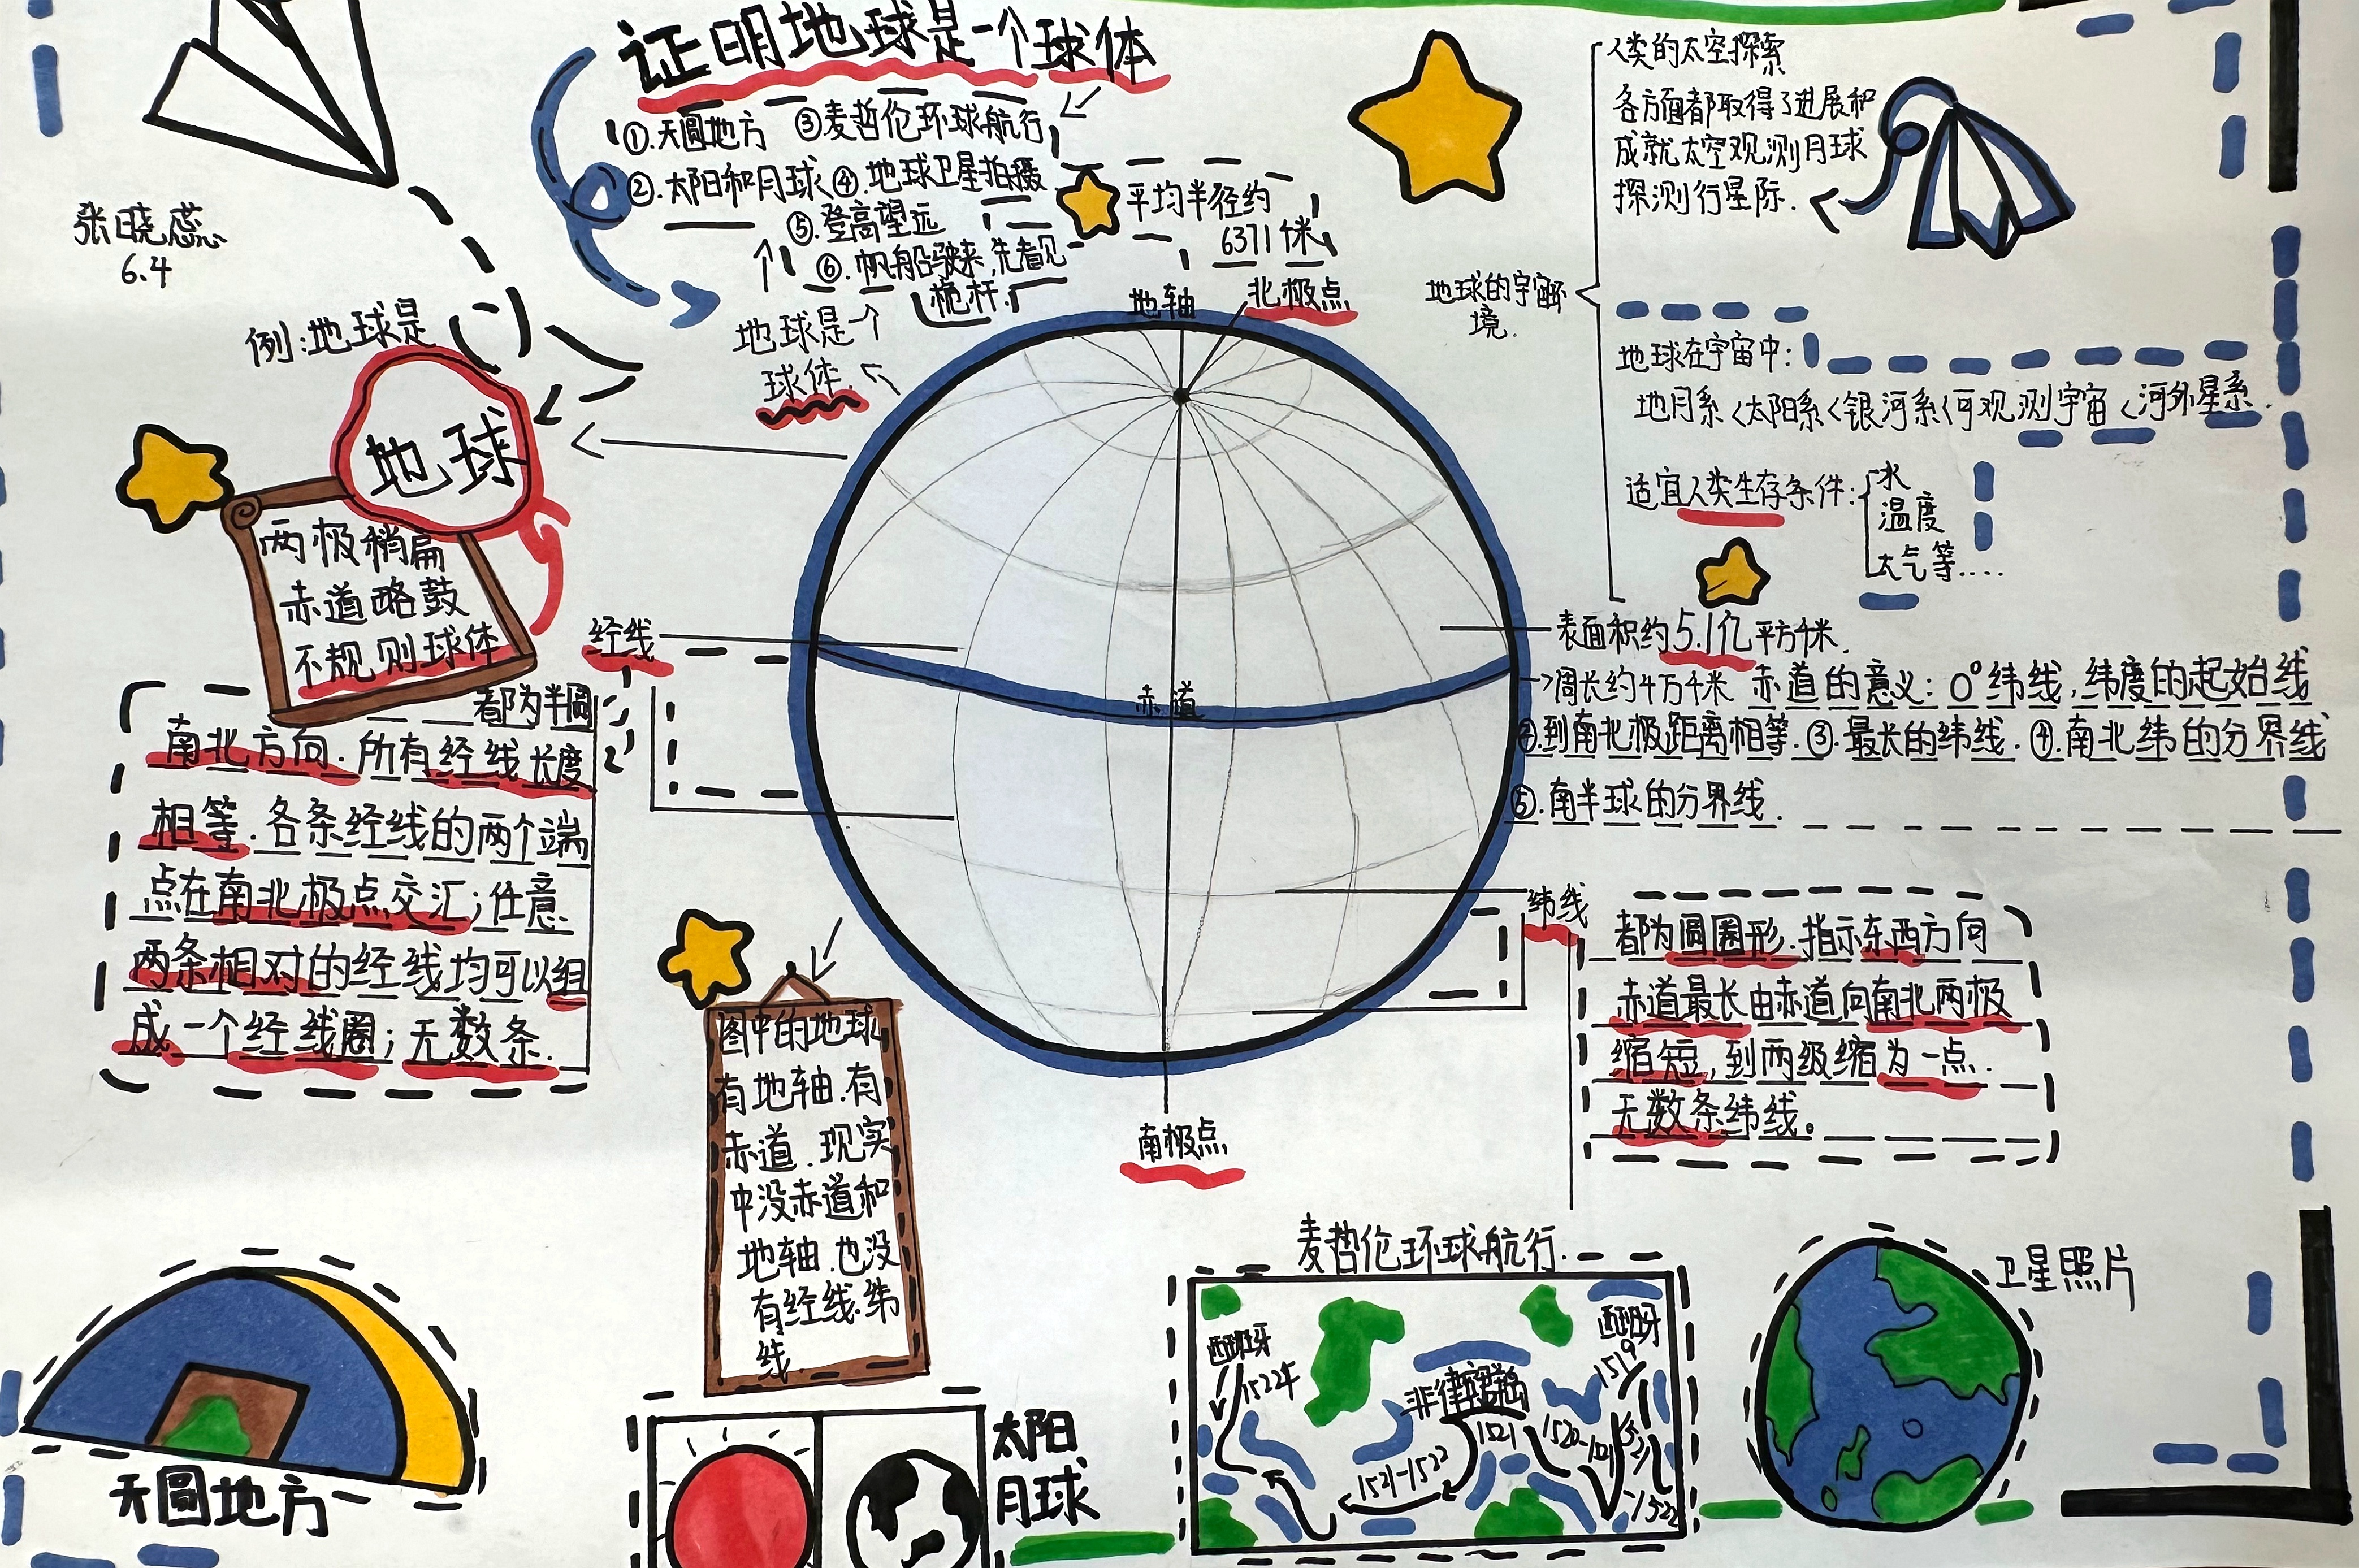 证明地球是一个球体
①.天圆地方 ③麦哲伦环球航行
②.太阳和月球 ④.地球卫星拍摄
⑤.登高望远
⑥.帆船驶来,先看见
桅杆.
地球是
球体.
平均半径约
6371千米
地轴
北极点
张晓蕊
6.4
例:地球是
地球
两极稍扁
赤道略鼓
不规则球体
经线
都为半圆
南北方向.所有经线长度
相等.各条经线的两个端
点在南北极点交汇;任意
两条相对的经线均可以组
成一个经线圈;无数条.
赤道
南极点
人类的太空探索
各方面都取得了进展和
成就太空观测月球
探测行星际.
地球的宇宙环
境.
地球在宇宙中:
地月系<太阳系<银河系<可观测宇宙<河外星系.
适宜人类生存条件:
水
温度
大气等....
表面积约5.1亿平方千米.
→周长约4万千米 赤道的意义: 0°纬线,纬度的起始线
②.到南北极距离相等.③.最长的纬线.④.南北纬的分界线
⑤.南半球的分界线.
纬线
都为圆圈形.指示东西方向
赤道最长由赤道向南北两极
缩短,到两级缩为一点.
无数条纬线。
图中的地球
有地轴.有
赤道.现实
中没赤道和
地轴.也没
有经线.纬
线.
天圆地方
太阳
月球
麦哲伦环球航行.
西班牙
1522年
非律宾群岛
1521
1521-1522
西班牙
1519
卫星照片